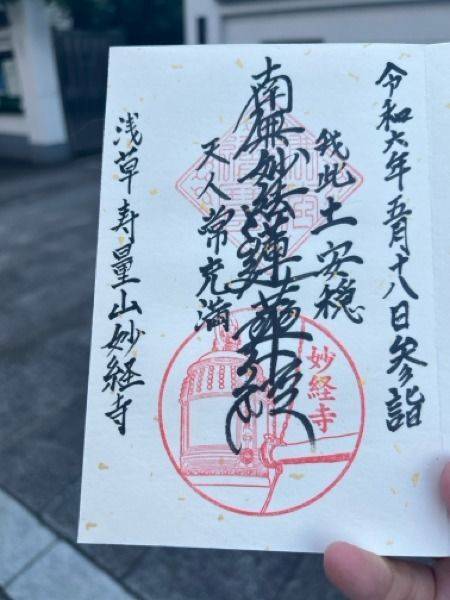 令和六年五月十八日参詣
我此土安穏
南無妙法蓮華経
天人常充満
浅草寿量山妙経寺
妙経寺